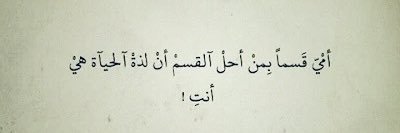 أمْيّ قَسماً بِمنْ أحلْ آلقسمْ أنْ لذةْ آلحيآة هيْ
أنتِ !